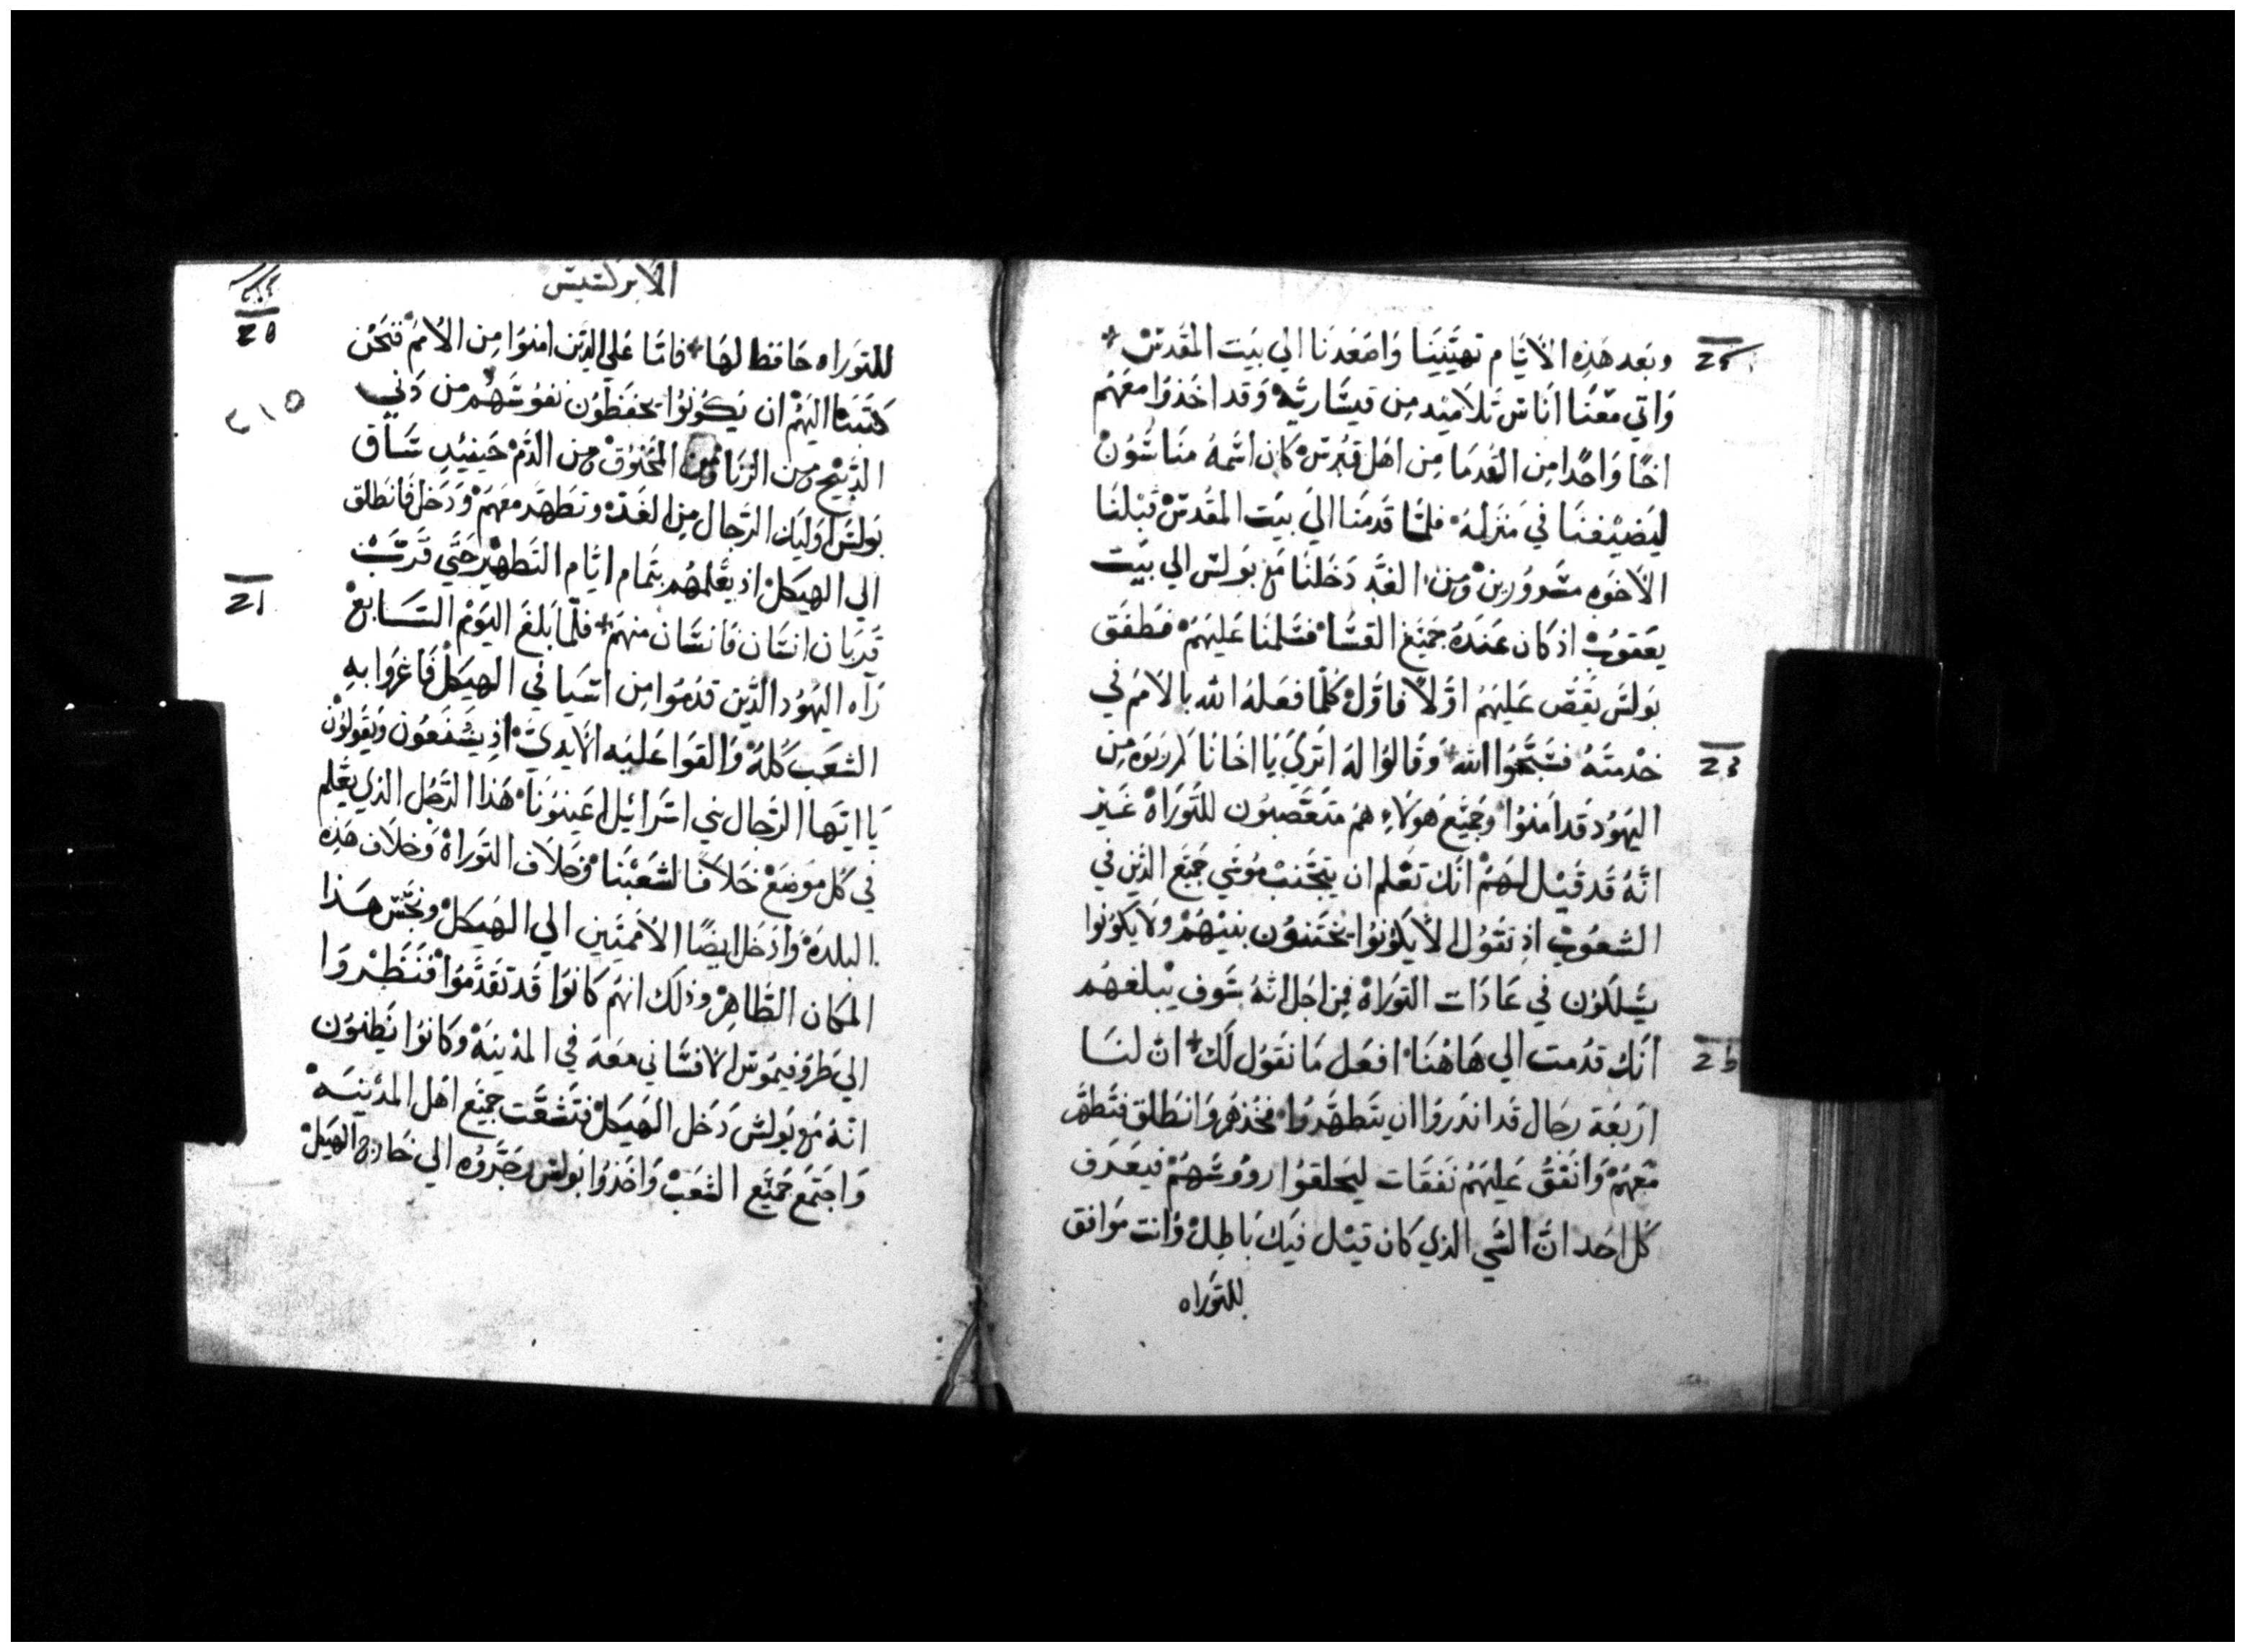 وبعد هذه الأيام تهيينا واصعدنا الي بيت المقدس
واتي معنا اناس تلاميد من قيساريه وقد اخذوا معهم
اخًا واحدًا من القدما من اهل قبرس كان اسمه مناسون
ليضيفنا في منزله فلما قدمنا الي بيت المقدس قبلنا
الاخوه مسرورين ومن الغد دخلنا مع بولس الي بيت
يعقوب اذ كان عنده جميع القسا فسلمنا عليهم فطفق
بولس يقص عليهم اولاً فاول كلما فعله الله بالامم في
خدمته فسبحوا الله وقالوا له اتري يا اخانا كم ربوه من
اليهود قد امنوا وجميع هولاء هم متعصبون للتوراة غير
انه قد قيل لهم انك تعلم ان يتجنب موسي جميع الذين في
الشعوب اذ تقول الا يكونوا يختنون بنيهم ولا يكونوا
يسلكون في عادات التوراة فمن اجل انه سوف يبلغهم
انك قدمت الي هاهنا افعل ما نقول لك ان لنا
اربعة رجال قد اندروا ان يتطهروا فخذهم وانطلق فتطهر
معهم وانفق عليهم نفقات ليحلقوا رووسهم فيعرف
كل احد ان الشي الذي كان قيل فيك باطل وانت موافق
للتوراه
الابركسيس
للتوراه حافظ لها فاما علي الذين امنوا من الامم فنحن
كتبنا اليهم ان يكونوا يحفظون نفوسهم من دني
الذبيح ومن الزنا ومن المخنوق ومن الدم حينيد ساق
بولس اوليك الرجال من الغد وتطهر معهم ودخل فانطلق
الي الهيكل اذ يعلمهم بتمام ايام التطهير حتي قرب
قربان انسان فانسان منهم فلما بلغ اليوم السابع
راه اليهود الذين قدموا من اسيا في الهيكل فاغروا به
الشعب كله والقوا عليه الايدي اذ يشنعون ويقولون
يا ايها الرجال بني اسرائيل اعينونا هذا الرجل الذي يعلم
في كل موضع خلافًا لشعبنا وخلاف التوراة وخلاف هذه
البلدة وادخل ايضًا الامميين الي الهيكل ونجس هذا
المكان الطاهر وذلك انهم كانوا قد تقدموا فنظروا
الي طروفيموس الافساني معه في المدينة وكانوا يظنون
انه مع بولس دخل الهيكل فتشعت جميع اهل المدينه
واجتمع جميع الشعب واخذوا بولس وجروه الي خارج الهيكل